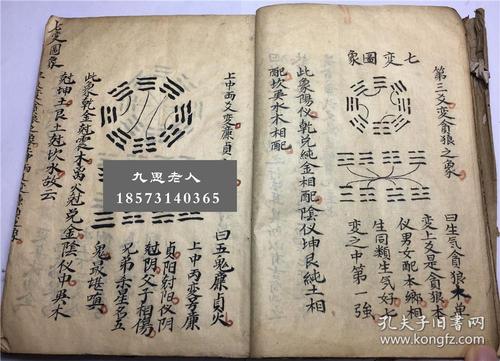 第三爻变貪狼之象
七变圖象
曰生氣貪狼木単
变上爻是貪狼本
仪男女配本鄉相
生同類生氣好七
变之中第一強
此象陽仪乾兑純金相配陰仪坤艮純土相
配坎巽水木相配
上中两爻变廉貞
曰五鬼廉貞火
上中丙变号廉
貞陽射陽仪阴
尅阴父子相傷
兄弟
鬼
此象乾金尅震木离火尅兑金陰仪中巽木
尅坤土艮土尅坎水故云
上变圖象
九思老人
18573140365
孔夫子旧书网